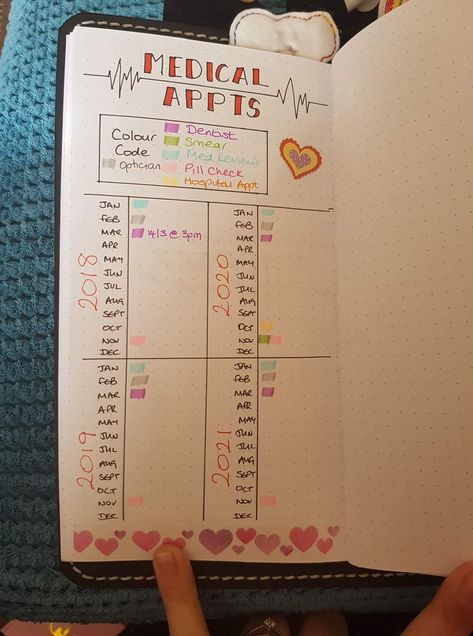 MEDICAL
APPTS
Colour Code
Dentist
Smear
Med Review
Optician
Pill Check
Hospital Appt
2018
JAN
FEB
MAR 14/3 @ 3pm
APR
MAY
JUN
JUL
AUG
SEPT
OCT
NOV
DEC
2020
JAN
FEB
MAR
APR
MAY
JUN
JUL
AUG
SEPT
OCT
NOV
DEC
2019
JAN
FEB
MAR
APR
MAY
JUN
JUL
AUG
SEPT
OCT
NOV
DEC
2021
JAN
FEB
MAR
APR
MAY
JUN
JUL
AUG
SEPT
OCT
NOV
DEC